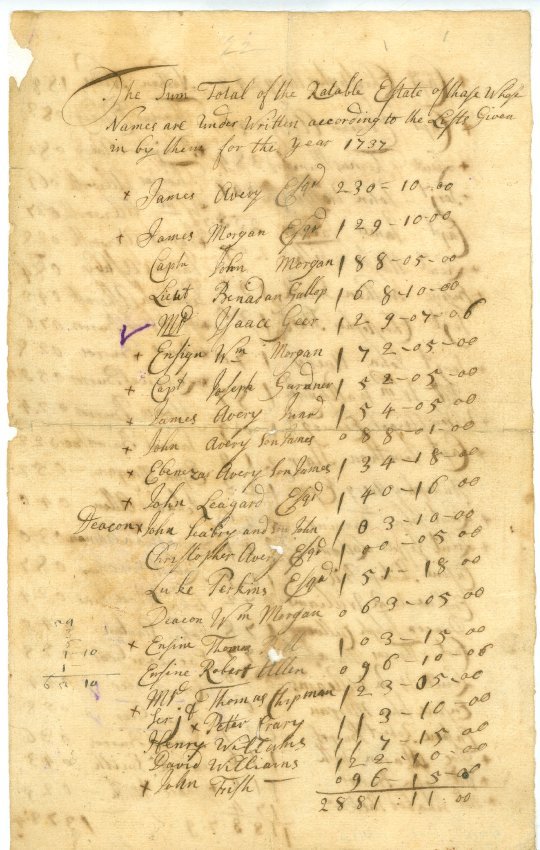 The Sum Total of the Ratable Estate of thase Whose
Names are under Written according to the Lests Given
in by them for the year 1737
+ James Avery Esqr 230-10-00
+ James Morgan Esqr 129-10-00
Captn John Morgan 188-05-00
Lieut Benadan Gallop 168-10-00
Mr Isaace Geer 129-07-06
+ Ensign Wm Morgan 172-05-00
+ Capt Joseph Gardner 152-05-00
+ James Avery Junr 154-05-00
+ John Avery son James 088-01-00
+ Ebenezar Avery son James 134-18-00
+ John Leagard Esqr 140-16-00
Deacon x John Seabry and son John 103-10-00
Christopher Avery Esqr 180-05-00
Luke Perkins Esqr 151-18-00
Deacon Wm Morgan 063-05-00
+ Ensine Thomas 103-15-00
Ensine Robert Allen 096-10-06
+ Mr Thomas Chipman 123-05-00
Ser x Peter Crary 113-10-00
Henry Williams 117-15-00
David Williams 122-10-00
+ John Frish 096-15-00
2881:11:00
59
1-10